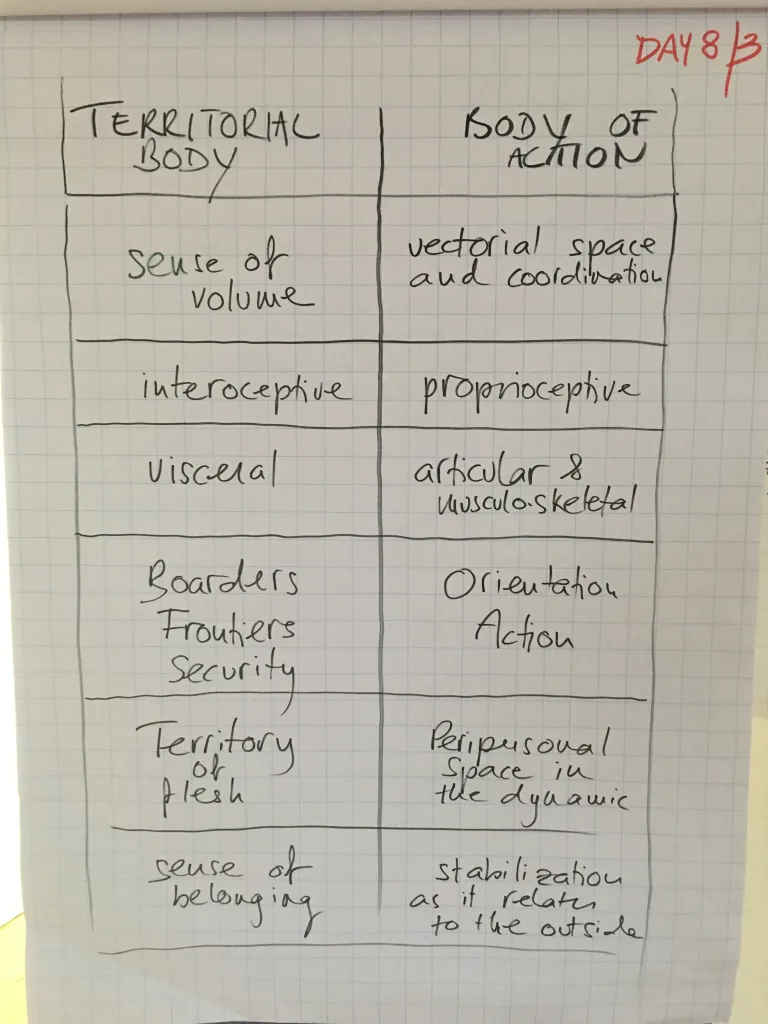 DAY 8/3
TERRITORIAL
BODY
BODY OF
ACTION
sense of
volume
vectorial space
and coordination
interoceptive
proprioceptive
visceral
articular &
musculo-skeletal
Boarders
Frontiers
Security
Orientation
Action
Territory
of
flesh
Peripersonal
space in
the dynamic
sense of
belonging
stabilization
as it relates
to the outside